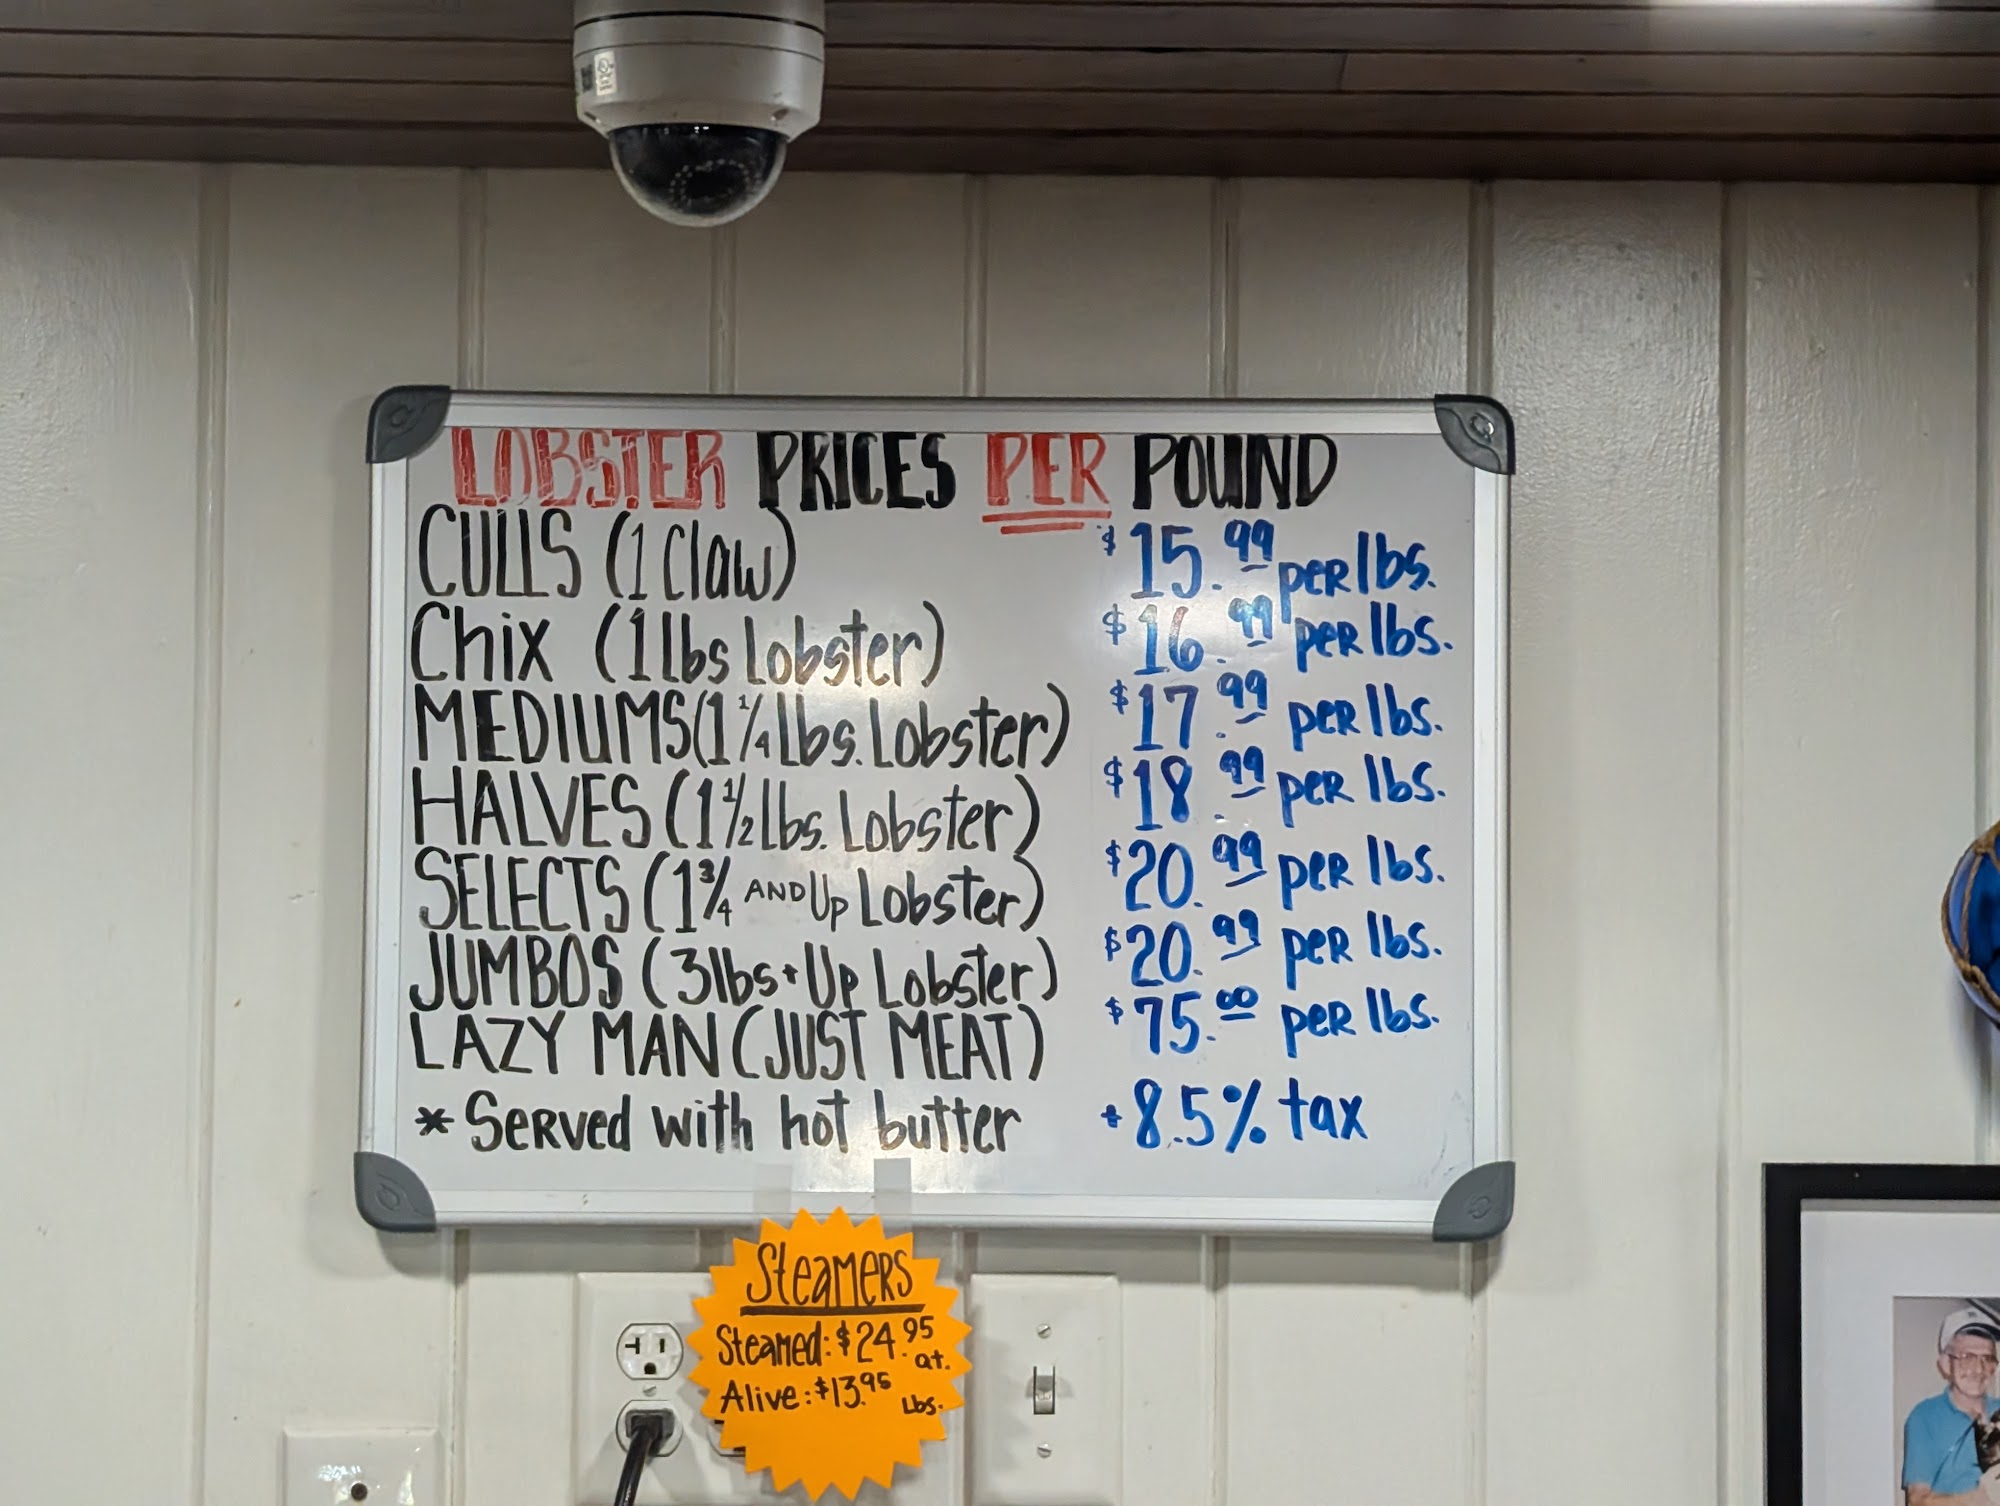 LOBSTER PRICES PER POUND
CULLS (1 Claw) $15.99 per lbs.
Chix (1 lbs Lobster) $16.99 per lbs.
MEDIUMS (1 1/4 lbs. Lobster) $17.99 per lbs.
HALVES (1 1/2 lbs. Lobster) $18.99 per lbs.
SELECTS (1 3/4 AND Up Lobster) $20.99 per lbs.
JUMBOS (3 lbs + Up Lobster) $20.99 per lbs.
LAZY MAN (JUST MEAT) $75.00 per lbs.
* Served with hot butter + 8.5% tax
Steamers
Steamed: $24.95 qt.
Alive: $13.95 Lbs.